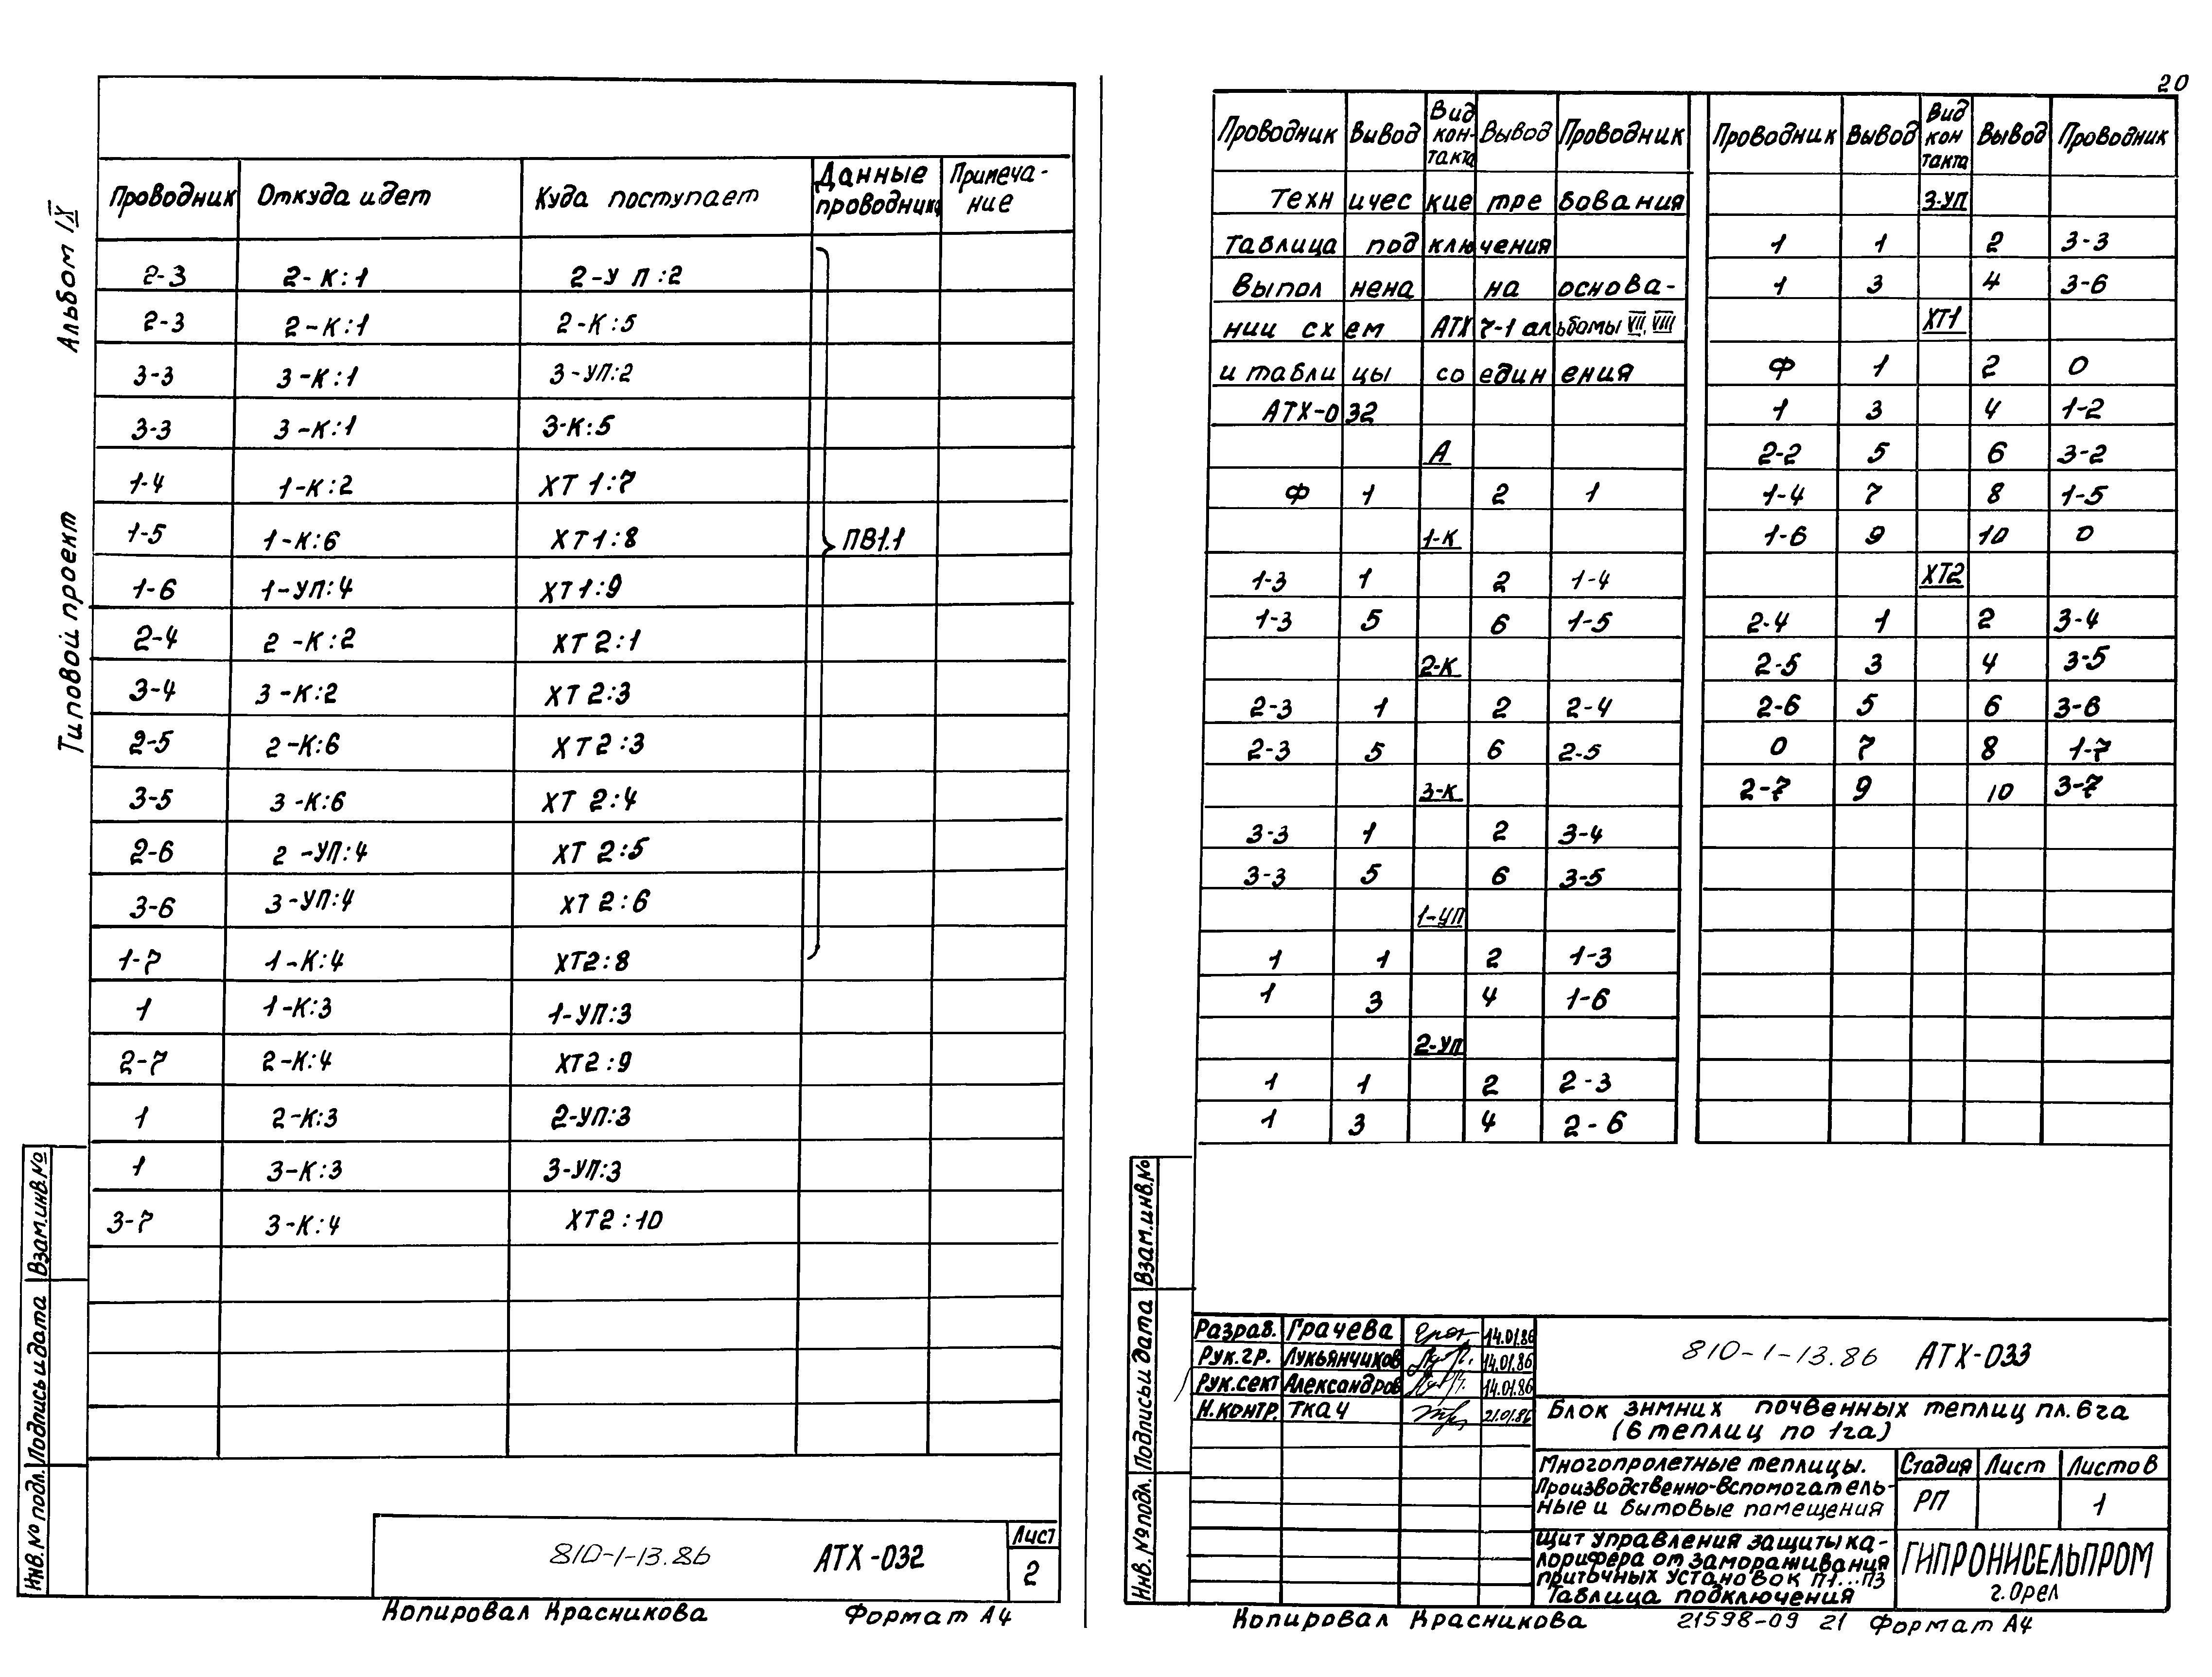 20
Альбом IX
Типовой проект
Проводник Откуда идет Куда поступает Данные проводника Примеча-ние
2-3 2-К:1 2-УП:2
2-3 2-К:1 2-К:5
3-3 3-К:1 3-УП:2
3-3 3-К:1 3-К:5
1-4 1-К:2 ХТ1:7
1-5 1-К:6 ХТ1:8 ПВ1.1
1-6 1-УП:4 ХТ1:9
2-4 2-К:2 ХТ2:1
3-4 3-К:2 ХТ2:3
2-5 2-К:6 ХТ2:3
3-5 3-К:6 ХТ2:4
2-6 2-УП:4 ХТ2:5
3-6 3-УП:4 ХТ2:6
1-7 1-К:4 ХТ2:8
1 1-К:3 1-УП:3
2-7 2-К:4 ХТ2:9
1 2-К:3 2-УП:3
1 3-К:3 3-УП:3
3-7 3-К:4 ХТ2:10
Инв.№ подл. Подпись и дата Взам.инв.№
810-1-13.86 АТХ-032
Лист
2
Копировал Красникова Формат А4
Проводник Вывод Вид кон-такта Вывод Проводник
Технические требования
таблица подключения
выполнена на основа-
нии схем АТХ 7-1 альбомы VII, VIII
и таблицы соединения
АТХ-032
А
Ф 1 2 1
1-К
1-3 1 2 1-4
1-3 5 6 1-5
2-К
2-3 1 2 2-4
2-3 5 6 2-5
3-К
3-3 1 2 3-4
3-3 5 6 3-5
1-УП
1 1 2 1-3
1 3 4 1-6
2-УП
1 1 2 2-3
1 3 4 2-6
Проводник Вывод Вид кон такта Вывод Проводник
3-УП
1 1 2 3-3
1 3 4 3-6
ХТ1
Ф 1 2 0
1 3 4 1-2
2-2 5 6 3-2
1-4 7 8 1-5
1-6 9 10 0
ХТ2
2-4 1 2 3-4
2-5 3 4 3-5
2-6 5 6 3-6
0 7 8 1-7
2-7 9 10 3-7
Инв.№подл. Подпись и дата Взам.инв.№
Разраб. Грачева 14.01.86
Рук.гр. Лукьянчиков 14.01.86
Рук.сект Александров 14.01.86
Н.контр. Ткач 21.01.86
810-1-13.86 АТХ-033
Блок зимних почвенных теплиц пл. 6 га
(6 теплиц по 1га)
Многопролетные теплицы.
Производственно-вспомогатель-
ные и бытовые помещения
Стадия Лист Листов
РП 1
Щит управления защиты ка-
лорифера от замораживания
приточных установок П1...П3
Таблица подключения
ГИПРОНИСЕЛЬПРОМ
г.Орел
Копировал Красникова 21598-09 21 Формат А4